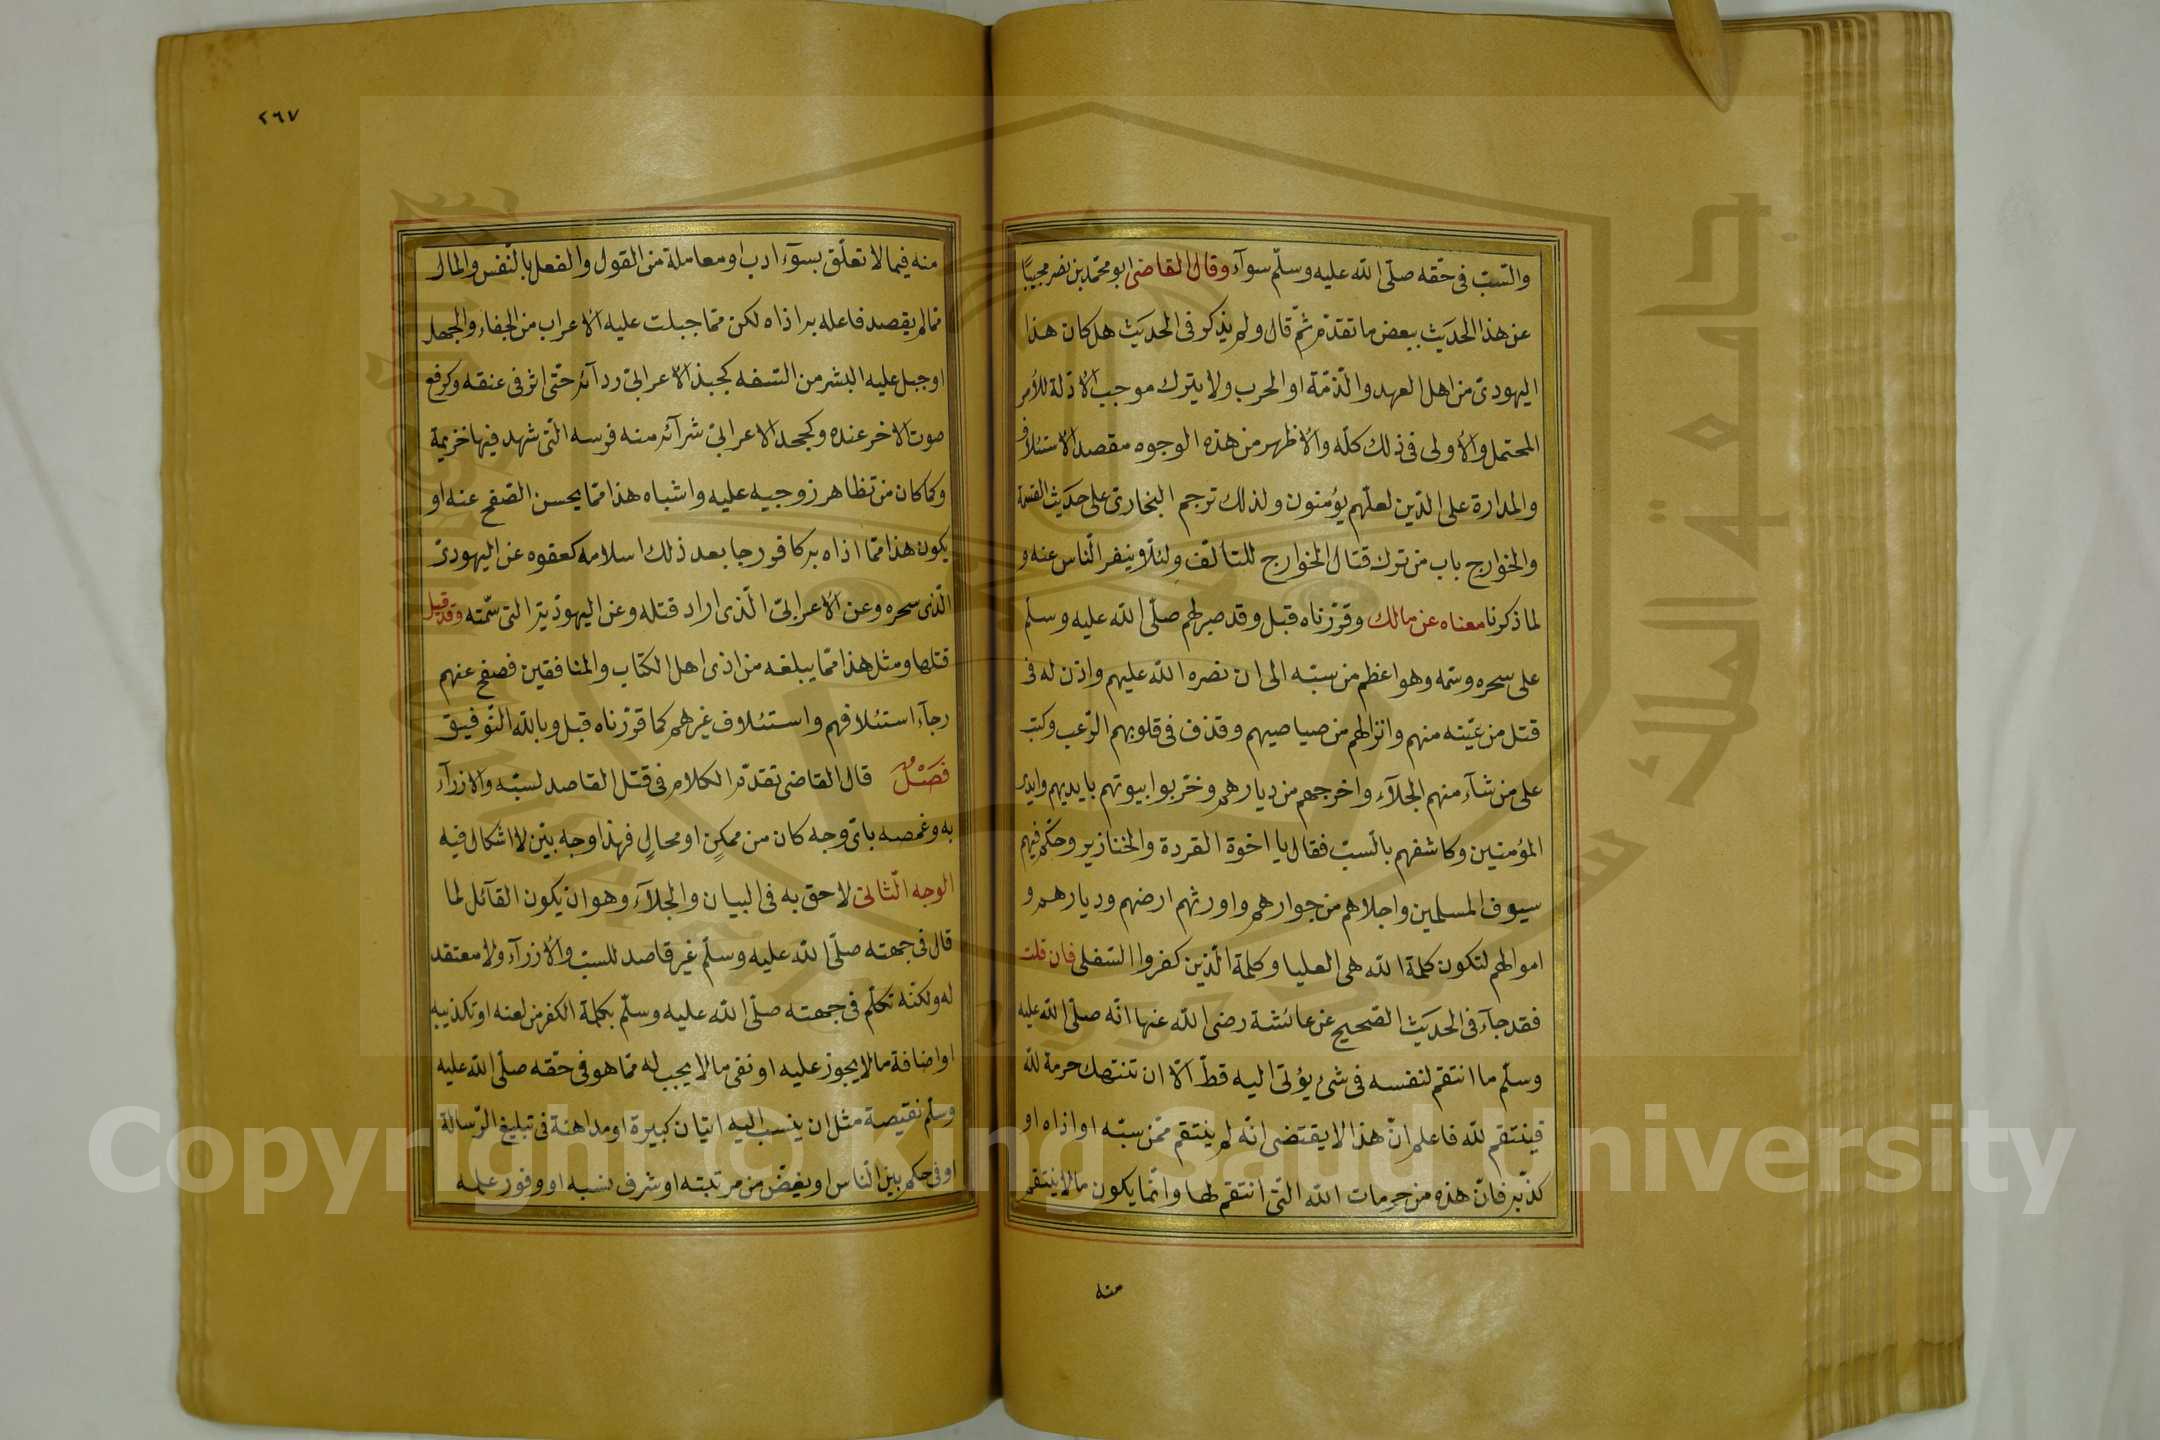 والسّبّ فى حقّه صلّى الله عليه وسلّم سوآء وقال القاضى ابو محمّد بن نصر مجيبًا
عن هذا الحديث ببعض ما تقدّم ثمّ قال ولم يذكر فى الحديث هل كان هذا
اليهودىّ من اهل العهد والذّمّة او الحرب ولا يترك موجب الأدلة للأمر
المحتمل والأولى فى ذلك كلّه والأظهر من هذه الوجوه مقصد الاستئلاف
والمدارة على الدّين لعلّهم يؤمنون ولذلك ترجم البخارىّ على حديث القسمة
والخوارج باب من ترك قتال الخوارج للتألّف ولئلّا ينفر النّاس عنه و
لما ذكرنا معناه عن مالك وقرّرناه قبل وقد صبر لهم صلّى الله عليه وسلّم
على سحره وسّمه وهو اعظم من سبّه الى ان نصره الله عليهم واذن له فى
قتل من عيّنه منهم وانزالهم من صياصيهم وقذف فى قلوبهم الرّعب وكتب
على من شآء منهم الجلآء واخرجهم من ديارهم وخرّبوا بيوتهم بايديهم وايدى
المؤمنين وكاشفهم بالسّبّ فقال يا اخوة القردة والخنازير وحكّم فيهم
سيوف المسلمين واجلاهم من جوارهم واورثهم ارضهم وديارهم و
اموالهم لتكون كلمة الله هى العليا وكلمة الّذين كفروا السّفلى فان قلت
فقد جآء فى الحديث الصّحيح عن عائشة رضى الله عنها انّه صلّى الله عليه
وسلّم ما انتقم لنفسه فى شئ يؤتى اليه قطّ الّا ان تنتهك حرمة لله
فينتقم لله فاعلم انّ هذا لا يقتضى انّه لم ينتقم ممّن سبّه او اذاه او
كذّبه فانّ هذه من حرمات الله الّتى انتقم لها وانّما يكون ما لا ينتقم
منه
٢٦٧
منه فيما لا تعلّق بسوٓء ادب او معاملة من القول والفعل بالنّفس والمال
ممّا لم يقصد فاعله به اذاه لكن ممّا جبلت عليه الأعراب من الجفاء والجهل
او جبل عليه البشر من السّفه كجبذ الأعرابىّ ردآئه حتّى اثر فى عنقه وكرفع
صوت الاخر عنده وكجحد الاعرابىّ شرآئه منه فرسه الّتى شهد فيها خزيمة
وكما كان من تظاهر زوجيه عليه واشباه هذا ممّا يحسن الصّفح عنه او
يكون هذا ممّا اذاه به كافر رجا بعد ذلك اسلامه كعفوه عن اليهودىّ
الّذى سحره وعن الأعرابىّ الّذى اراد قتله وعن اليهوديّة الّتى سّمته وقد قيل
قتلها ومثل هذا ممّا يبلغه من اذى اهل الكتاب والمنافقين فصفح عنهم
رجآء استئلافهم واستئلاف غيرهم كما قرّرناه قبل وبالله التّوفيق
فَصْلٌ قال القاضى تقدّم الكلام فى قتل القاصد لسبّه والازرآء
به وغمصه باىّ وجه كان من ممكنٍ او محالٍ فهذا وجه بيّن لا اشكال فيه
الوجه الثّانى لاحق به فى البيان والجلآء وهو ان يكون القآئل لما
قال فى جهته صلّى الله عليه وسلّم غير قاصد للسبّ والأزرآء ولا معتقد
له ولكنّه تكلّم فى جهته صلّى الله عليه وسلّم بكلمة الكفر من لعنه او تكذيبه
او اضافة ما لا يجوز عليه او نفى ما لا يجب له ممّا هو فى حقّه صلّى الله عليه
وسلّم نقيصة مثل ان ينسب اليه اتيان كبيرة او مداهنة فى تبليغ الرّسالة
او فى حكم بين النّاس او يغضّ من مرتبته او شرف نسبه او وفور علمه
جامعة الملك سعود
Copyright © King Saud University